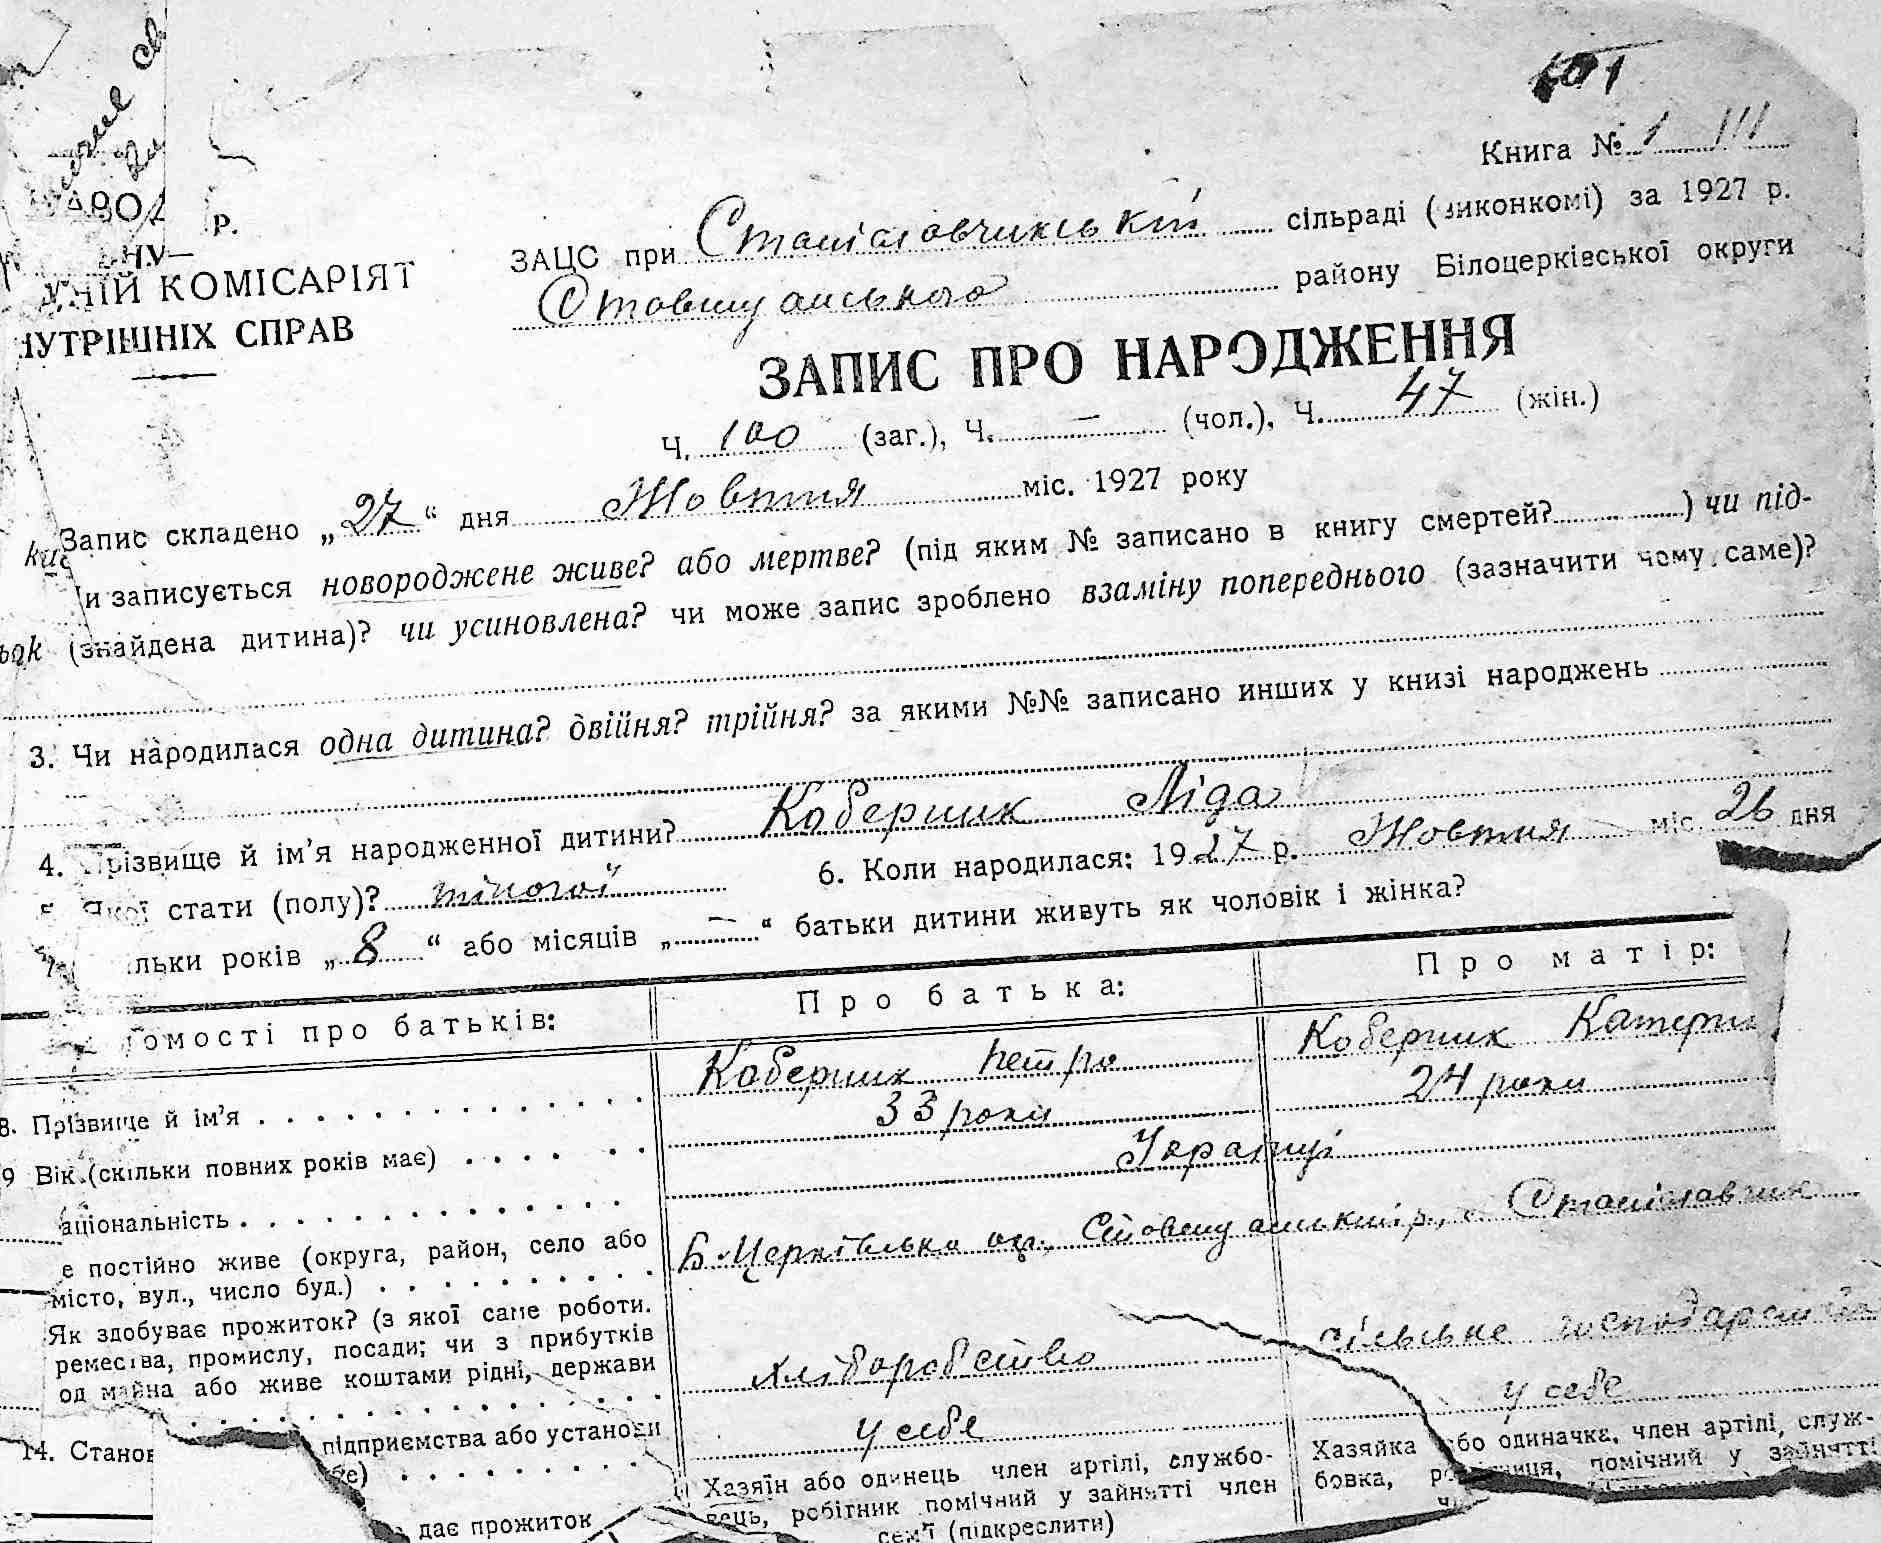 Книга № 1 III
Р.
КОМІСАРІЯТ
НУТРІШНІХ СПРАВ
ЗАЦС при Станіславчикській сільраді (виконкомі) за 1927 р.
Ставищанського району Білоцерківської округи
ЗАПИС ПРО НАРОДЖЕННЯ
Ч. 100 (заг.), Ч. — (чол.), Ч. 47 (жін.)
Запис складено „27“ дня Жовтня міс. 1927 року
и записується новороджене живе? або мертве? (під яким № записано в книгу смертей? ) чи під-
ьок (знайдена дитина)? чи усиновлена? чи може запис зроблено взаміну попереднього (зазначити чому саме)?
3. Чи народилася одна дитина? двійня? трійня? за якими №№ записано инших у книзі народжень
4. Прізвище й ім’я народженної дитини? Коберник Ліда
5. Якої стати (полу)? жіночої 6. Коли народилася: 1927 р. Жовтня міс. 26 дня
льки років „8“ або місяців „—“ батьки дитини живуть як чоловік і жінка?
омості про батьків: Про батька: Про матір:
8. Прізвище й ім’я Коберник Петро Коберник Катерин
9 Вік (скільки повних років має) 33 роки 24 роки
аціональність Українці
е постійно живе (округа, район, село або
місто, вул., число буд.) Б-Церківська окр., Ставищанський р., с. Станіславчик
Як здобуває прожиток? (з якої саме роботи.
ремества, промислу, посади; чи з прибутків
од майна або живе коштами рідні, держави
хліборобство сільське господарство
14. Станов підприємства або установи
бе) у себе у себе
Хазяїн або одинець член артілі, службо-
вець, робітник помічний у зайнятті член
сем’ї (підкреслити)
Хазяйка або одиначка, член артілі, служ-
бовка, робітниця, помічний у зайнятті
дає прожиток